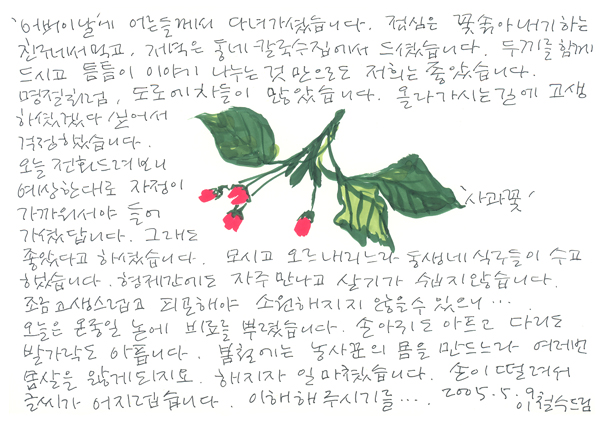 '어버이날'에 어른들께서 다녀가셨습니다. 점심은 꽃솎아내기하는
친구네서먹고, 저녁은 동네 칼국수집에서 드셨습니다. 두끼를 함께
드시고 틈틈이 이야기 나누는 것 만으로도 저희는 좋았습니다.
명절처럼, 도로에 차들이 많았습니다. 올라가시는길에 고생
하셨겠다 싶어서
걱정했습니다.
오늘 전화드려보니
예상한대로 자정이
가까워서야 들어
가셨답니다. 그래도
'사과꽃'
좋았다고 하셨습니다. 모시고 오르내리느라 동생네 식구들이 수고
했습니다. 형제간에도 자주만나고 살기가 쉽지않습니다.
조금 고생스럽고 피곤해야 소원해지지 않을수 있으니…
오늘은 온종일 논에 비료를 뿌렸습니다. 손아귀도 아프고 다리도
발가락도 아픕니다. 봄철에는 농사꾼의 몸을 만드느라 여러번
몸살을 앓게되지요. 해지자 일 마쳤습니다. 손이 떨려서
글씨가 어지럽습니다. 이해해주시기를…. 2005. 5. 9 이철수드림